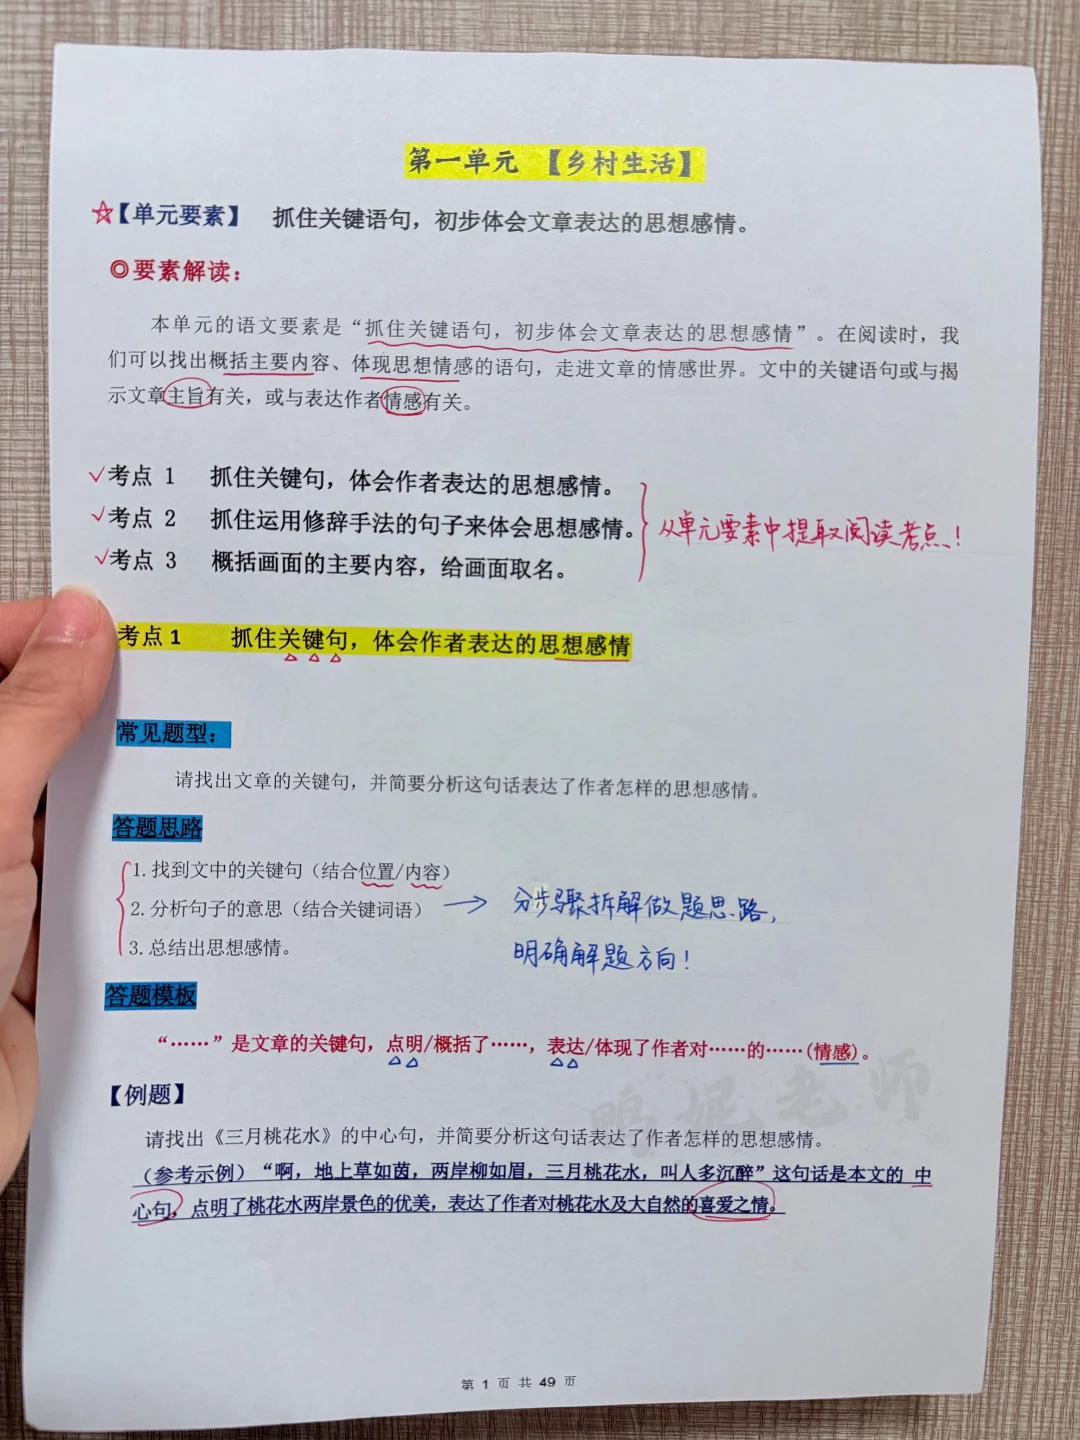 第一单元 【乡村生活】
☆【单元要素】 抓住关键语句，初步体会文章表达的思想感情。
◎要素解读：
本单元的语文要素是“抓住关键语句，初步体会文章表达的思想感情”。在阅读时，我
们可以找出概括主要内容、体现思想情感的语句，走进文章的情感世界。文中的关键语句或与揭
示文章主旨有关，或与表达作者情感有关。
✓考点 1 抓住关键句，体会作者表达的思想感情。
✓考点 2 抓住运用修辞手法的句子来体会思想感情。
✓考点 3 概括画面的主要内容，给画面取名。
从单元要素中提取阅读考点！
考点 1 抓住关键句，体会作者表达的思想感情
常见题型：
请找出文章的关键句，并简要分析这句话表达了作者怎样的思想感情。
答题思路
1. 找到文中的关键句（结合位置/内容）
2. 分析句子的意思（结合关键词语）
3. 总结出思想感情。
→ 分步骤拆解做题思路，
明确解题方向！
答题模板
“……”是文章的关键句，点明/概括了……，表达/体现了作者对……的……(情感)。
鸣妮老师
【例题】
请找出《三月桃花水》的中心句，并简要分析这句话表达了作者怎样的思想感情。
（参考示例）“啊，地上草如茵，两岸柳如眉，三月桃花水，叫人多沉醉”这句话是本文的 中
心句，点明了桃花水两岸景色的优美，表达了作者对桃花水及大自然的喜爱之情。
第 1 页 共 49 页